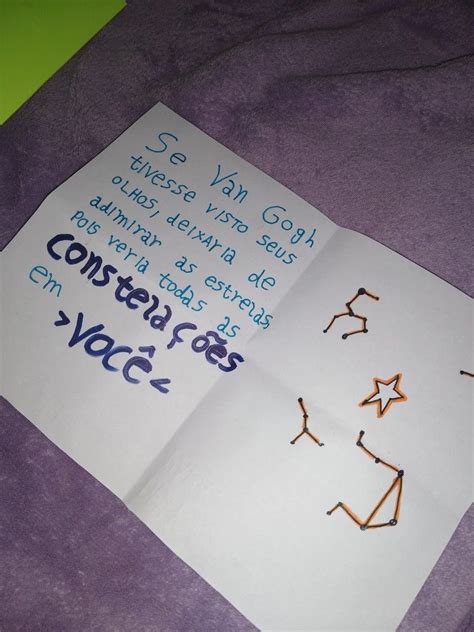 Se Van Gogh
tivesse visto seus
olhos, deixaria de
adimirar as estrelas,
pois veria todas as
constelações
em
>VOCÊ<